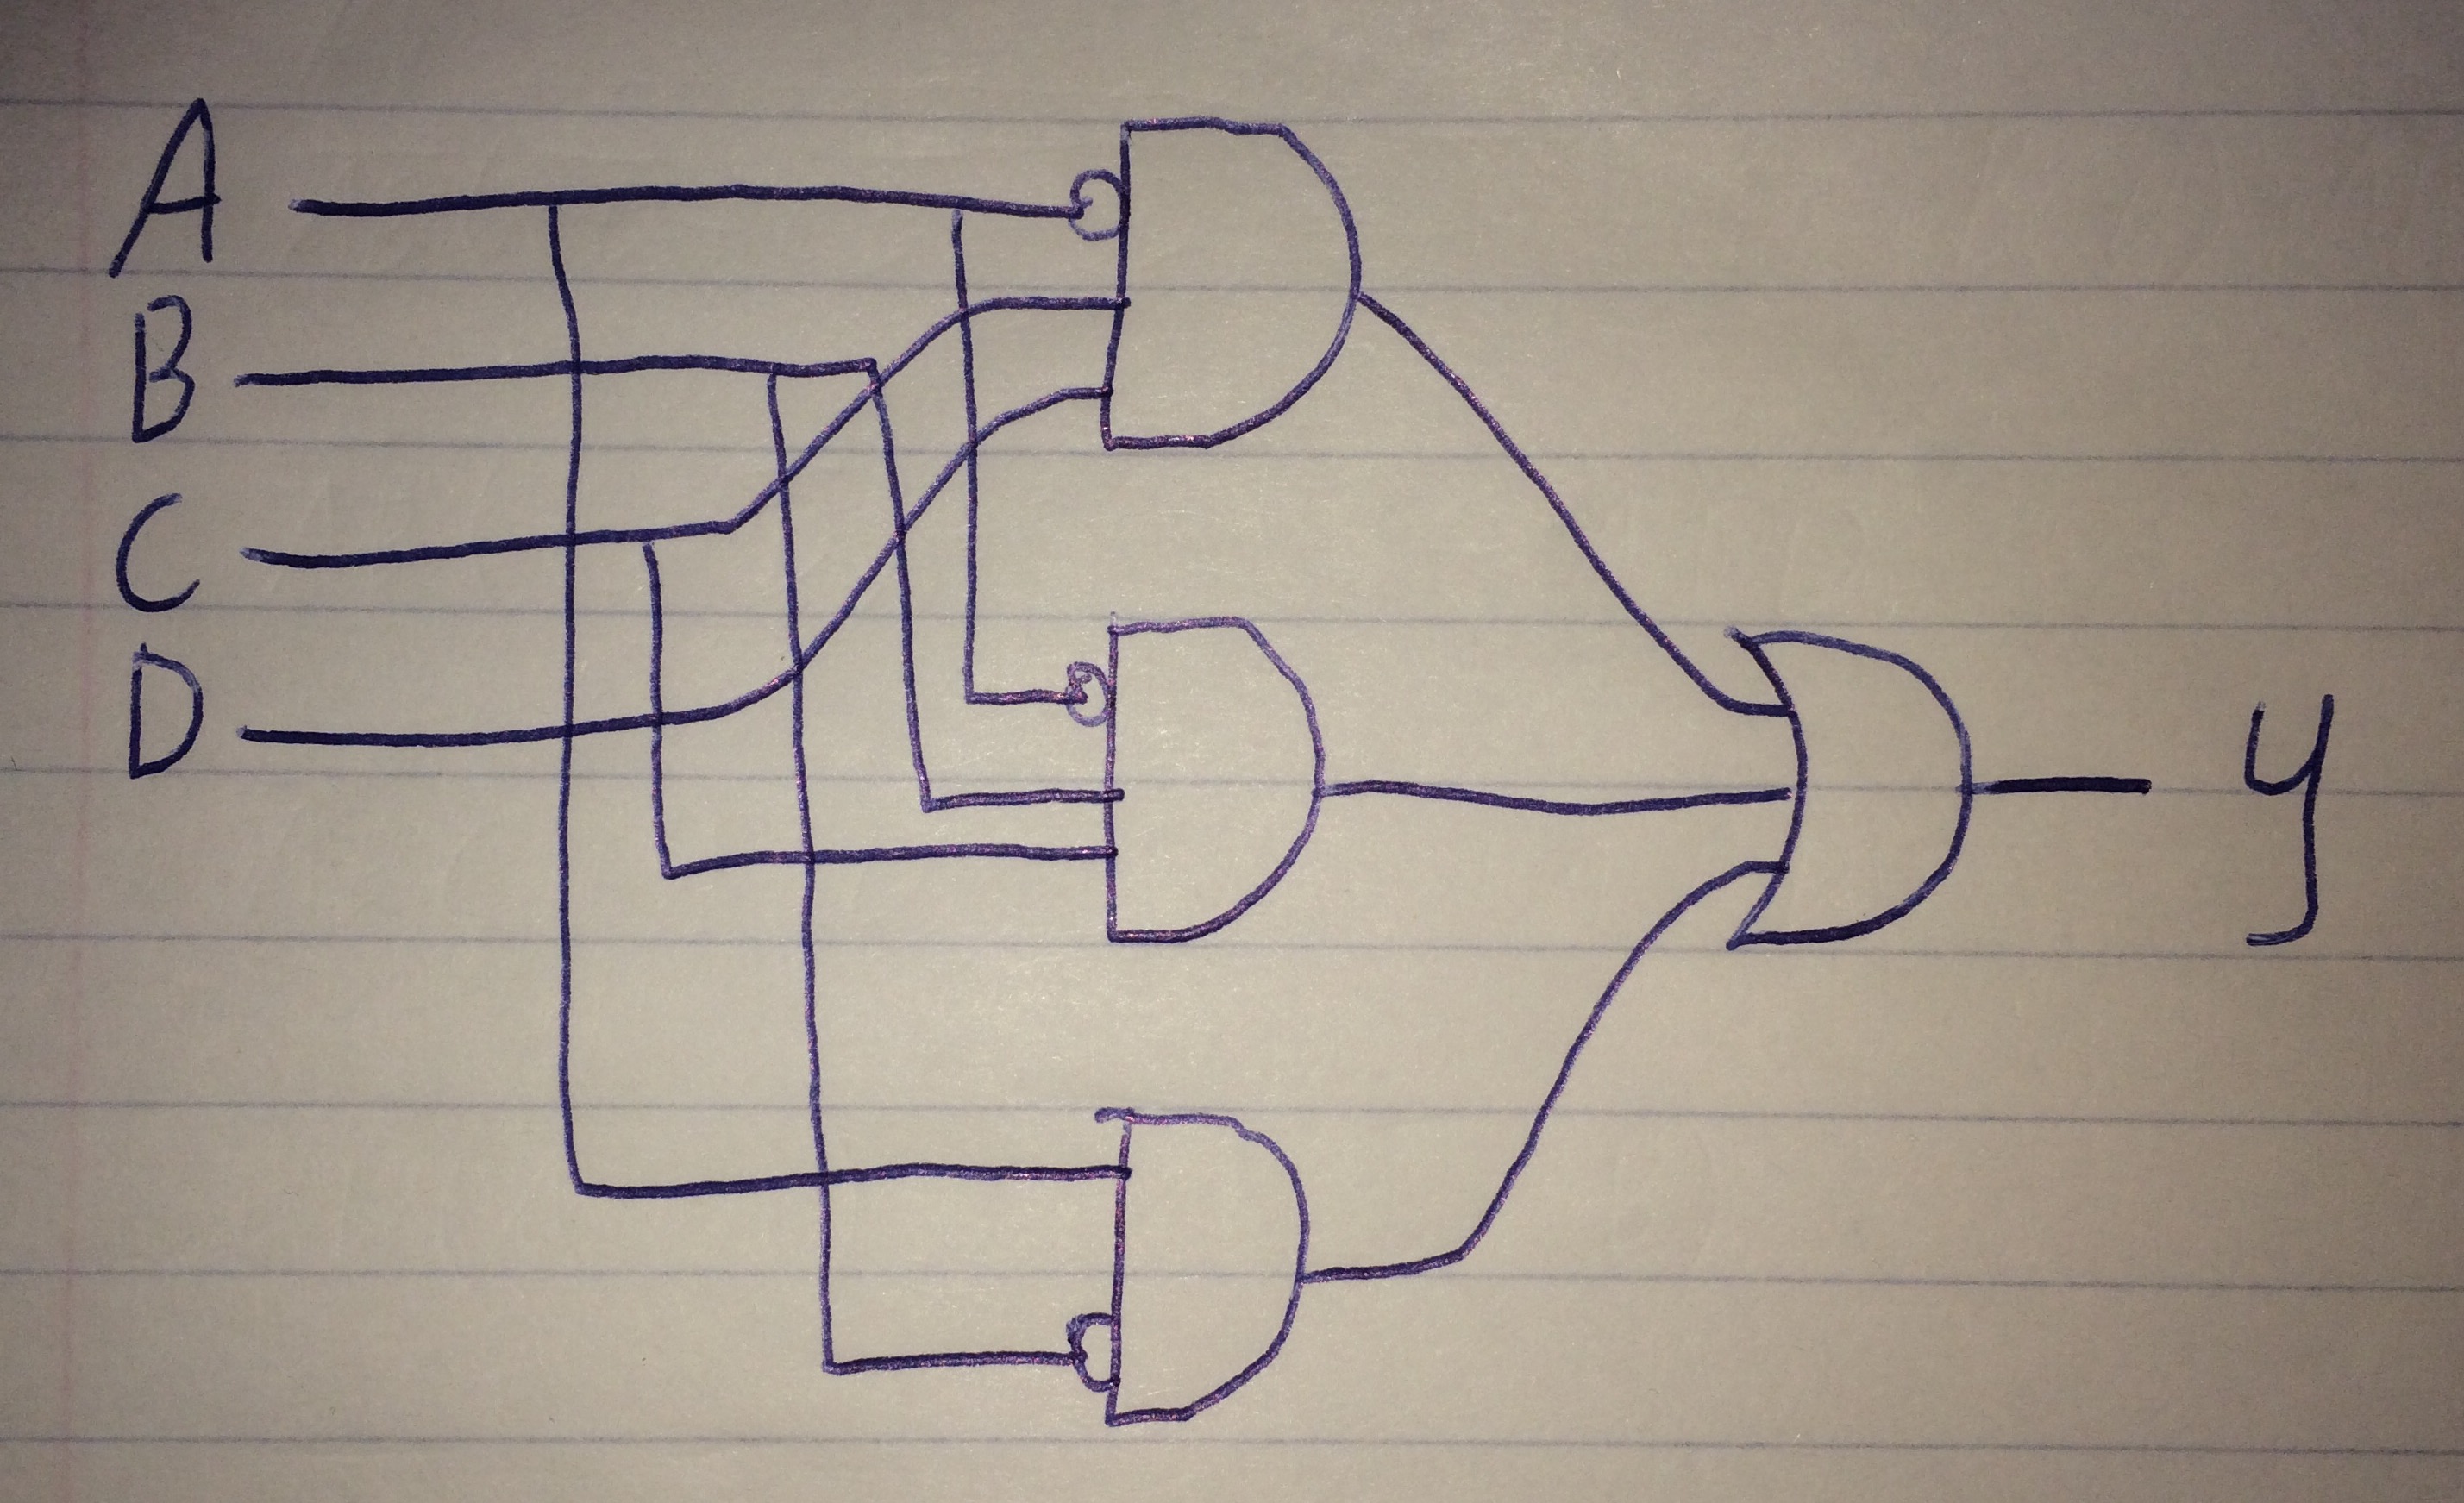 A
B
C
D
y